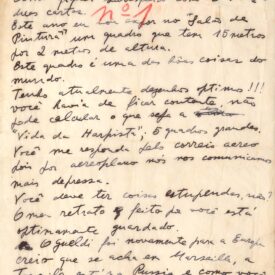 duas cartas.
Nº1
Este ano eu vou expor no Salão de
Pintura um quadro que tem 15 metros
por 2 metros de altura.
Este quadro é uma das boas coisas do
mundo.
Tenho atualmente desenhos optimos!!!
você havia de ficar contente, não
pode calcular o que seja a
"Vida da Harpista", 5 quadros grandes.
Você me responda pelo correio aereo
dois por aeroplano nós nos comunicamos
mais depressa.
Você deve ter coisas estupendas, não?
O meu retrato feito por você está
optimamente guardado.
O Gueldi foi novamente para a
creio que se acha em Marseille, a
está na Russia e como vou